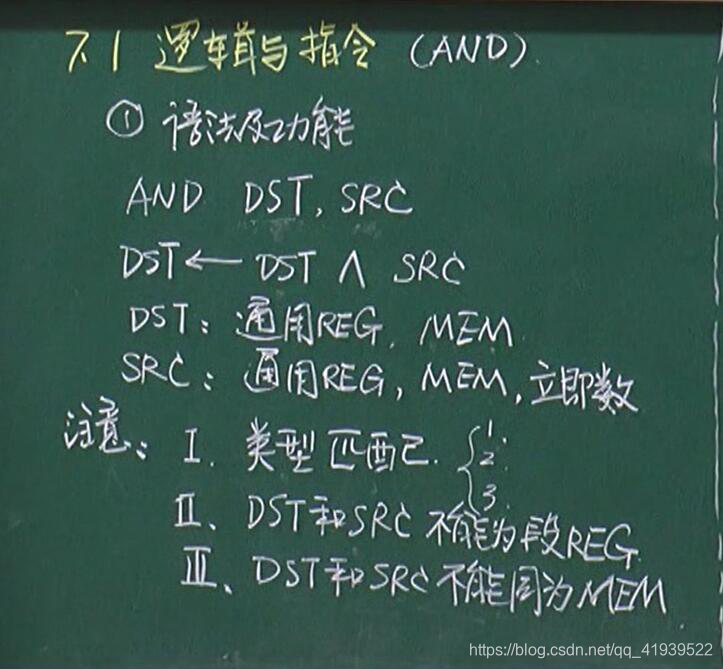 7.1 逻辑与指令 (AND).
① 语法及功能
AND DST, SRC
DST ← DST ∧ SRC
DST: 通用REG, MEM
SRC: 通用REG, MEM, 立即数
注意: Ⅰ. 类型匹配. { 1. 2. 3.
Ⅱ、DST和SRC不能为段REG.
Ⅲ、DST和SRC不能同为MEM
https://blog.csdn.net/qq_41939522